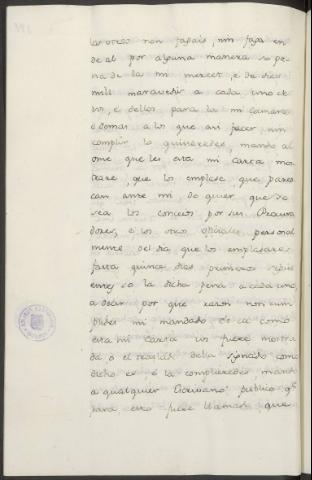 los otros non fagais, nin faga en
de al por alguna manera so pe
na de la mi merced, e de dies
mill maravedis a cada uno de
vos, e dellos para la mi camara
e demas a los que asi facer, nin
complir lo quisieredes, mando al
ome que les esta mi carta mos
trare, que los emplase, que pares
can ante mi do quier que yo
sea los concejos por sus Procura
dores, e los otros oficiales personal
mente del dia que los emplasare
fasta quince dias primeros sigui
entes so la dicha pena a cada uno,
a decir por que rason non cum
plides mi mandado, de co como
esta mi carta vos fuere mostra
da o el traslado della signado como
dicho es e la compliredes, mando
a qualquier Escribano publico q.e
para esto fuere llamado que